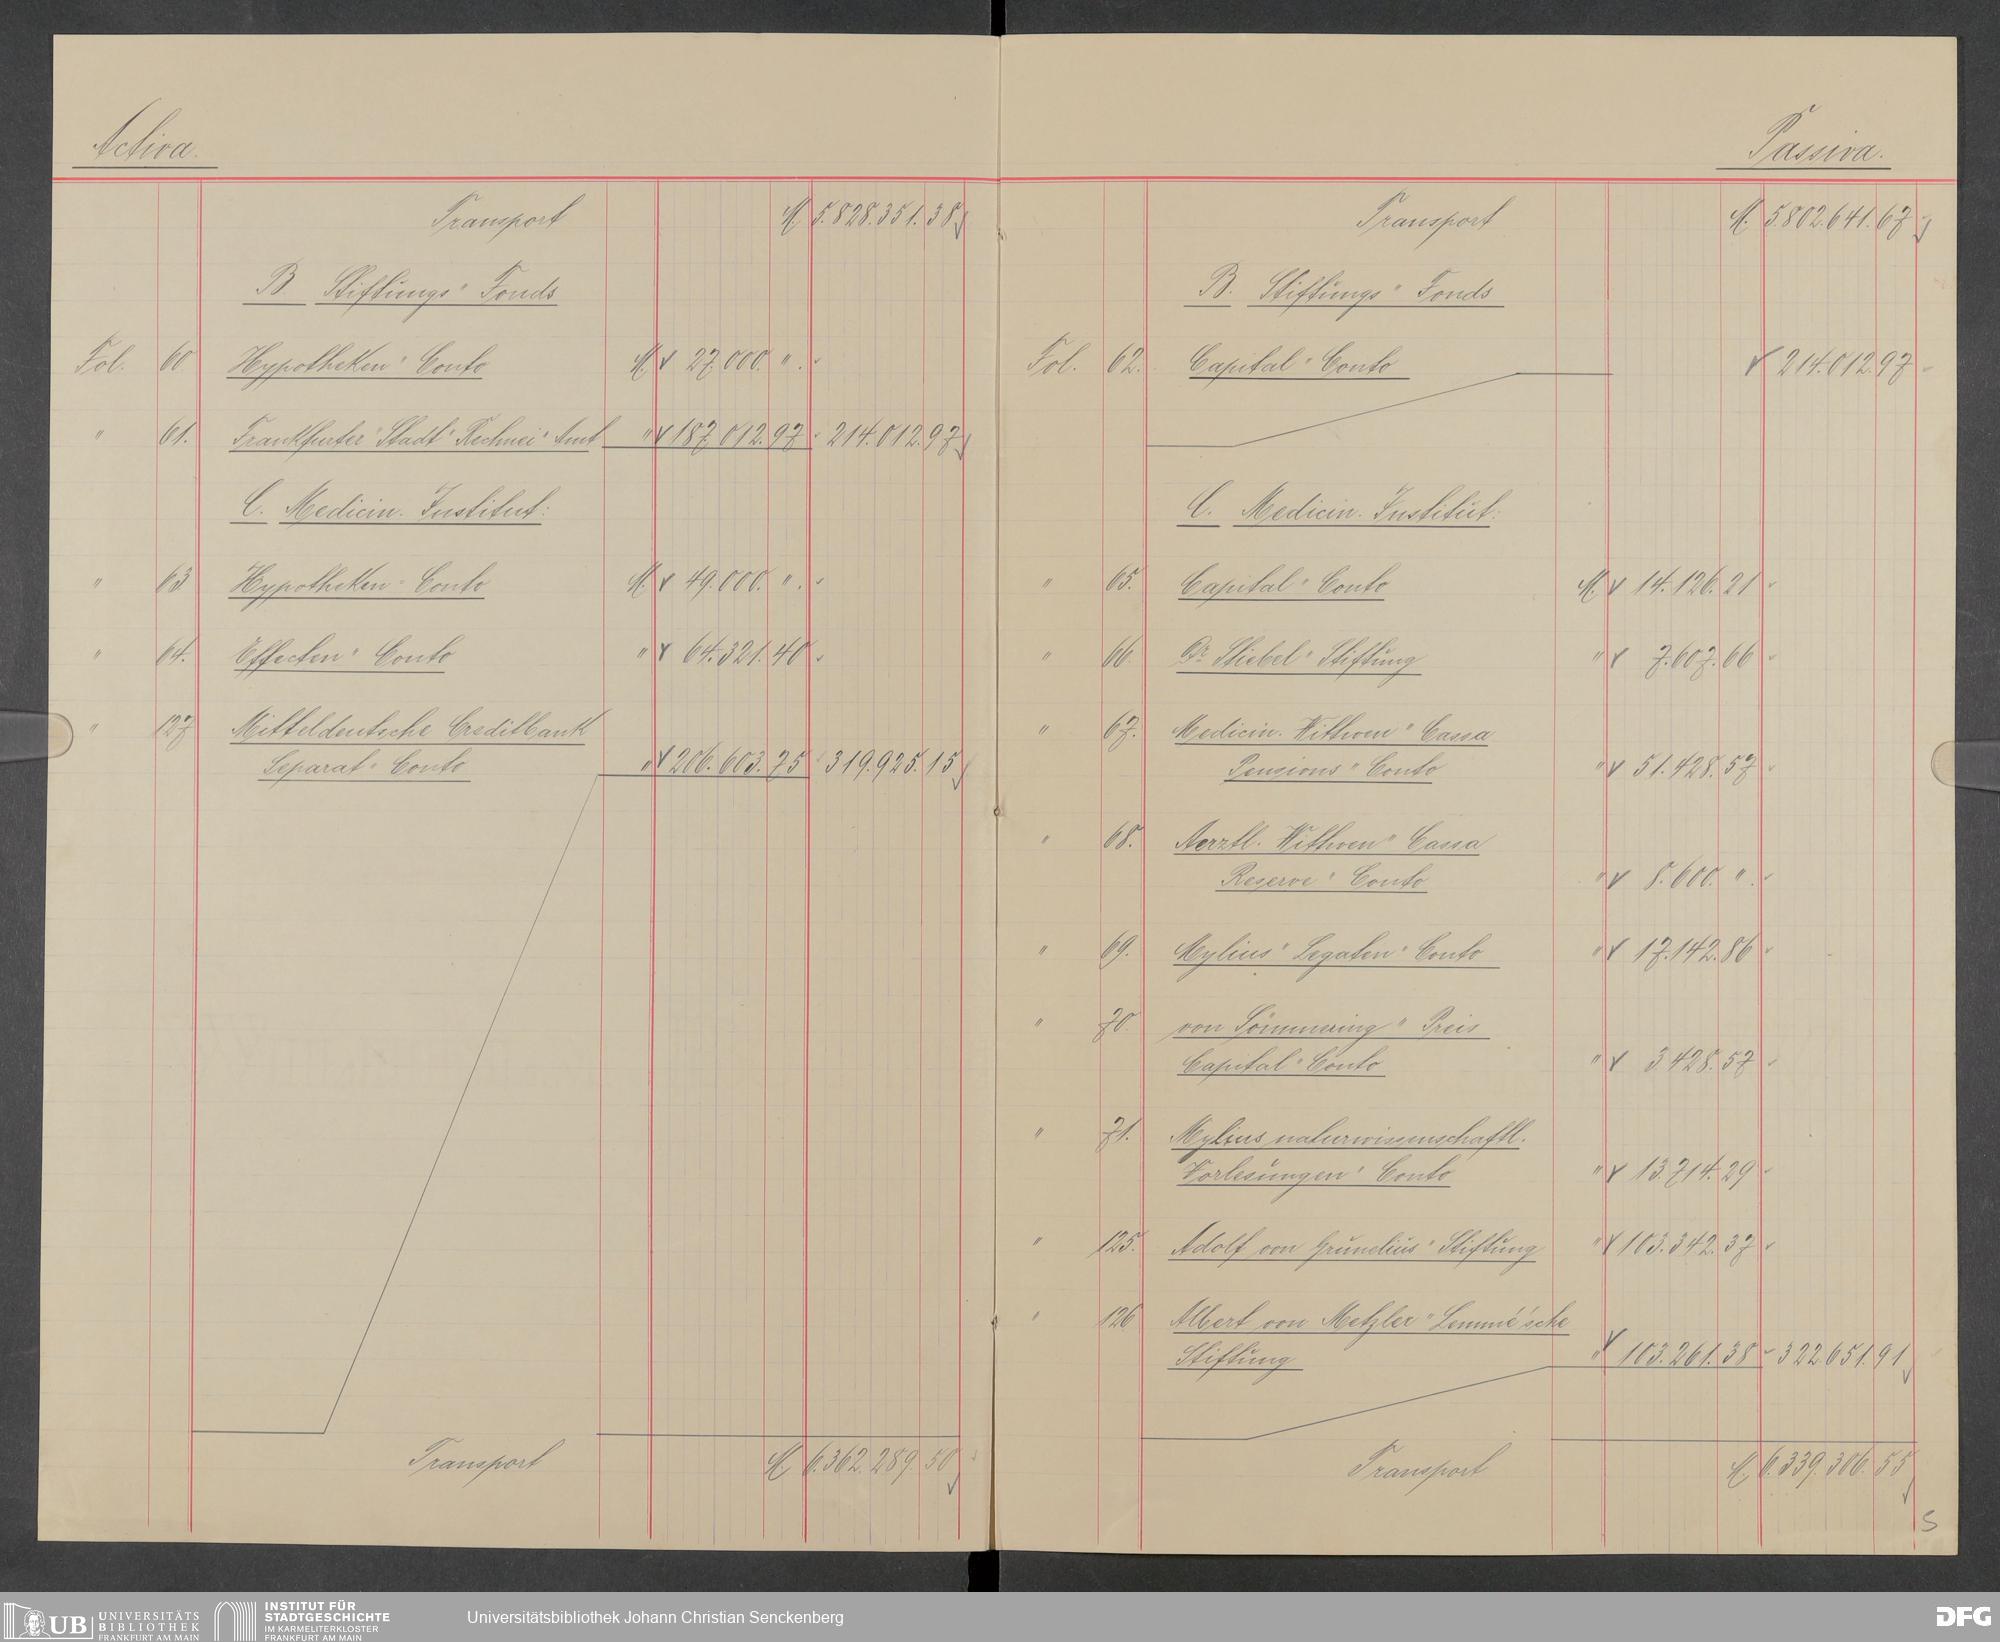 Activa.
Transport M. 5.828.351.38
B Stiftungs" Fonds
Fol. 60 Hypotheken" Conto M. 27.000. ".
" 61. Frankfurter "Stadt" Rechnei" Amt " 187.012.97 214.012.97
C. Medicin. Institut:
" 63 Hypotheken" Conto M. 49.000. ".
" 64. Effecten" Conto " 64.321.40
" 127 Mitteldeutsche Creditbank
Separat" Conto " 206.603.75 319.925.15
Transport M. 6.362.289.50
Passiva.
Transport M. 5.802.641.67
B. Stiftungs" Fonds
Fol. 62. Capital" Conto 214.012.97
C. Medicin. Institut:
" 65. Capital" Conto M. 14.126.21
" 66. Dr. Stiebel" Stiftung " 7.607.66
" 67. Medicin. Wittwen" Cassa
Pensions" Conto " 51.428.57
" 68. Aerztl. Wittwen" Cassa
Reserve" Conto " 8.600. ".
" 69. Mylius" Legaten" Conto " 17.142.86
" 70. von Sömmering" Preis
Capital" Conto " 3428.57
" 71. Mylius naturwissenschaftl.
Vorlesungen" Conto " 13.714.29
" 125. Adolf von Grunelius" Stiftung " 103.342.37
" 126 Albert von Metzler" Lemmé'sche
Stiftung " 103.261.38 322.651.91
Transport M. 6.339.306.55
5
UB UNIVERSITÄTS
BIBLIOTHEK
FRANKFURT AM MAIN
INSTITUT FÜR
STADTGESCHICHTE
IM KARMELITERKLOSTER
FRANKFURT AM MAIN
Universitätsbibliothek Johann Christian Senckenberg
DFG